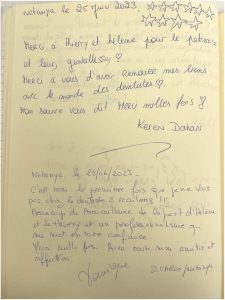 Netanya le 25 Juin 2023
Merci à Thierry et Hélène pour la patience
et leur gentillesse !
Merci à vous d'avoir renouer mes liens
avec le monde des dentistes !
Mon sourire vous dit Merci milles fois !
Keren Dahan
Netanya. le 25/06/2023.
C'est la première fois que je ne vais
pas chez le dentiste à reculons !!!
Beaucoup de bienveillance de la part d'Hélène
et de Thierry et un professionnalisme qui
me met en toute confiance.
Merci mille fois. Avec toute mon amitié et
affection